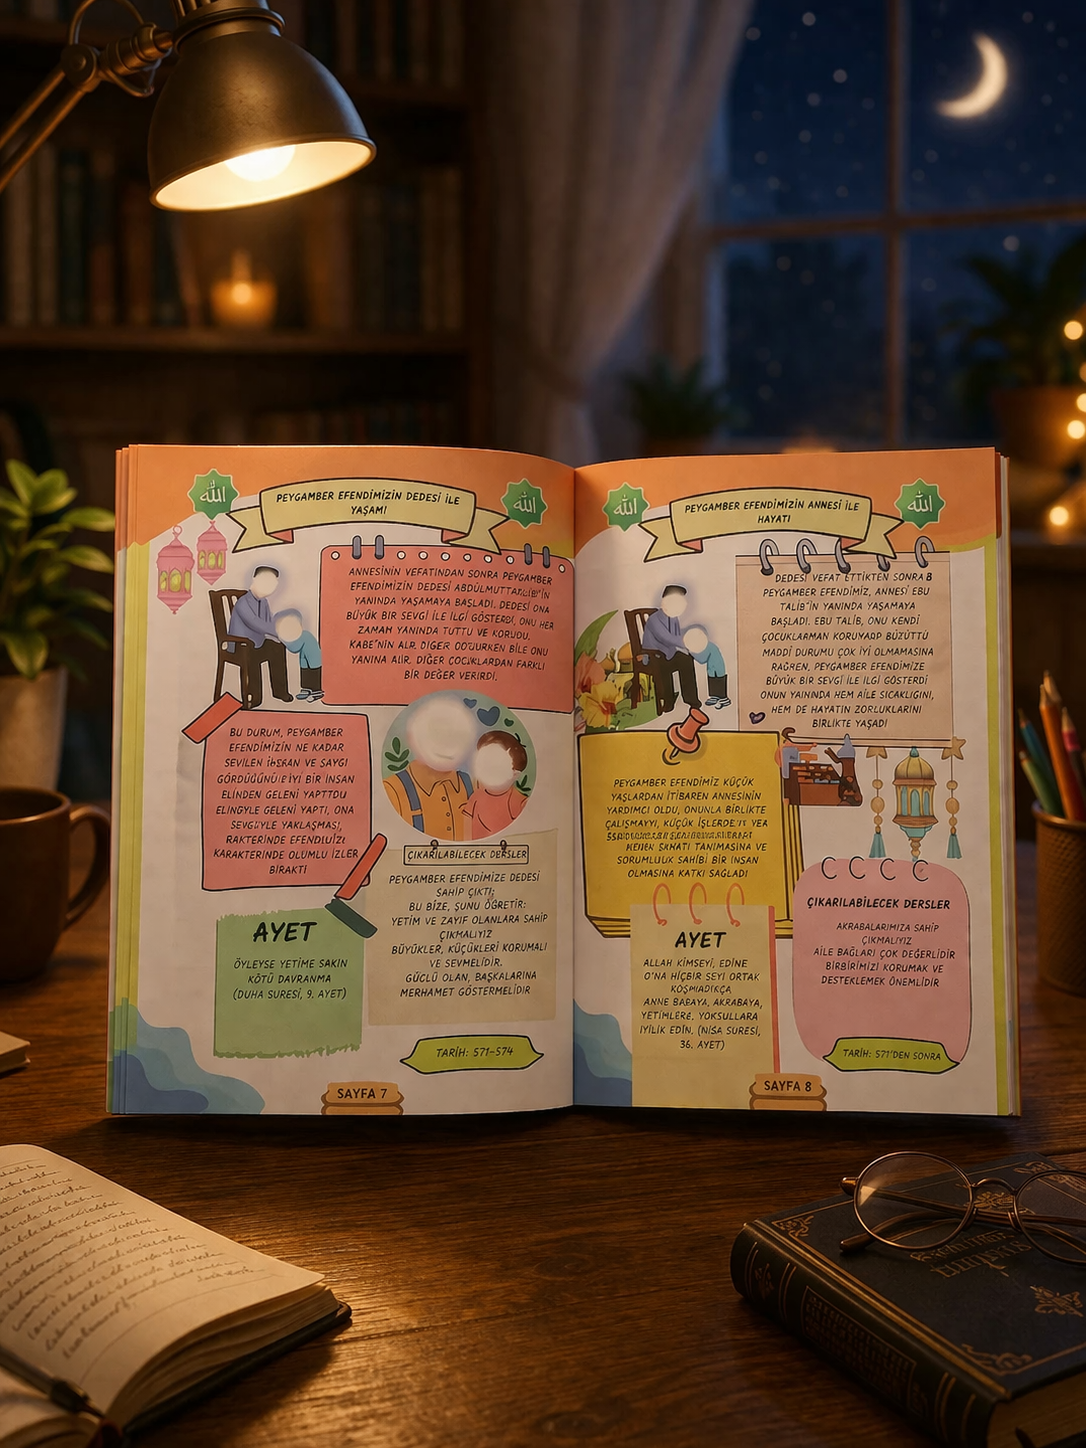 الله
PEYGAMBER EFENDİMİZİN DEDESİ İLE
YAŞAMI
الله
ANNESİNİN VEFATINDAN SONRA PEYGAMBER
EFENDİMİZİN DEDESİ
YANINDA YAŞAMAYA BAŞLADI. DEDESİ ONA
BÜYÜK BİR SEVGİ İLE İLGİ GÖSTERDİ, ONU HER
ZAMAN YANINDA TUTTU VE KORUDU.
KABE'NİN ALR. DIGER OTURKEN BİLE ONU
YANINA ALIR. DİĞER ÇOCUKLARDAN FARKLI
BİR DEĞER VERIRDI.
BU DURUM, PEYGAMBER
EFENDİMİZİN NE KADAR
SEVILEN İNSAN VE SAYGI
BİR İNSAN
ELINDEN GELENİ
GELENİ YAPTI, ONA
RAKTERİNDE
KARAKTERINDE OLUMLU İZLER
BIRAKTI
ÇIKARILABİLECEK DERSLER
PEYGAMBER EFENDİMİZE DEDESİ
SAHİP ÇIKTI;
BU BİZE, ŞUNU ÖĞRETİR:
YETİM VE ZAYIF OLANLARA SAHİP
ÇIKMALIYIZ
BÜYÜKLER, KÜÇÜKLERİ KORUMALI
VE SEVMELİDİR.
GÜÇLÜ OLAN, BAŞKALARINA
MERHAMET GÖSTERMELİDİR
AYET
ÖYLEYSE YETİME SAKIN
KÖTÜ DAVRANMA
(DUHA SURESİ, 9. AYET)
TARİH: 571-574
SAYFA 7
الله
PEYGAMBER EFENDİMİZİN ANNESİ İLE
HAYATI
الله
DEDESİ VEFAT ETTİKTEN SONRA B
PEYGAMBER EFENDİMİZ, ANNESİ EBU
TALİB'İN YANINDA YAŞAMAYA
BAŞLADI. EBU TALİB, ONU KENDİ
ÇOCUKLARMAN KORUYARP BÜZÜTTÜ
MADDİ DURUMU ÇOK İYİ OLMAMASINA
RAĞREN, PEYGAMBER EFENDİMİZE
BÜYÜK BİR SEVGİ İLE İLGİ GÖSTERDİ
ONUN YAININDA HEM AİLE SICAKLIGINI,
HEM DE HAYATIN ZORLUKLARINI
BİRLİKTE YAŞADI
PEYGAMBER EFENDİMİZ KÜÇÜK
YAŞLARDAN İTİBAREN ANNESİNİN
YARDIMCI OLDU, ONUNLA BİRLİKTE
ÇALIŞMAYI, KÜÇÜK
TANIMASINA VE
SORUMLULUK SAHİBİ BİR İNSAN
OLMASINA KATKI SAĞLADI
AYET
ALLAH KİMSEYİ, EDİNE
O'NA HİÇBİR SEYI ORTAK
KOŞMIADIKÇA
ANNE BABAYA, AKRABAYA,
YETİMLERE. YOKSULLARA
İYİLİK EDİN. (NİSA SURESİ,
36. AYET)
ÇIKARILABİLECEK DERSLER
AKRABALARIMIZA SAHİP
ÇIKMALIYIZ
AİLE BAĞLARI ÇOK DEĞERLİDİR
BIRBIRIMIZI KORUMAK VE
DESTEKLEMEK ÖNEMLİDİR
TARİH: 571'DEN SONRA
SAYFA 8